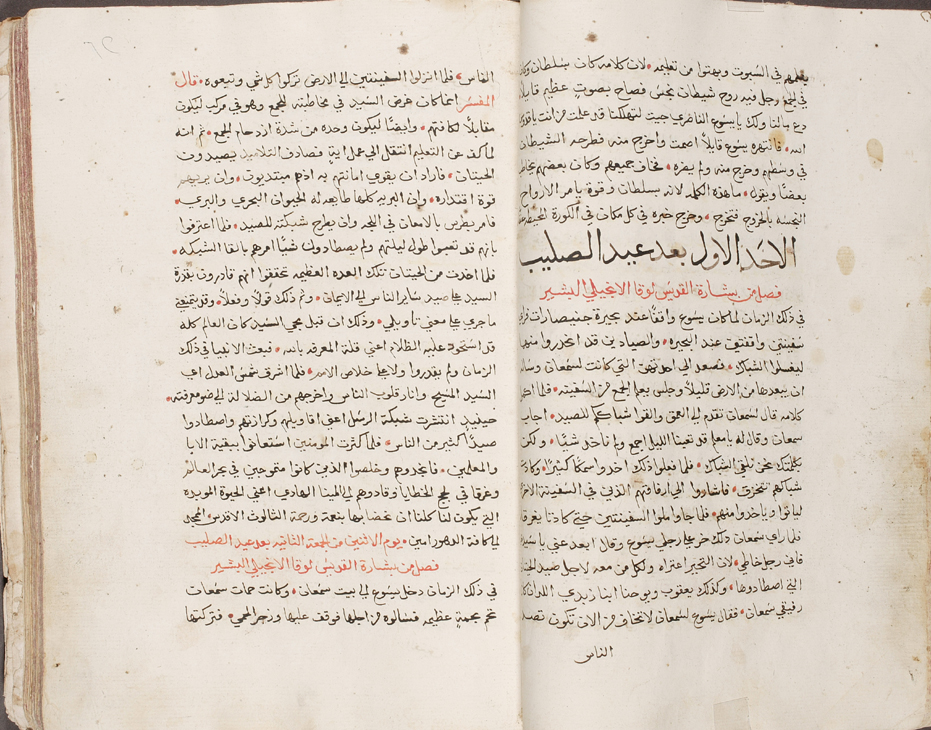 يعلمهم في السبوت وبهتوا من تعليمه • لان كلامه كان بسلطان وكان
في المجمع رجل فيه روح شيطان نجس فصاح بصوت عظيم قايلا
دع مالنا ولك يا يسوع الناصري جيت لتهلكنا قد علمت من انت يا قدوس
الله • فانتهره يسوع قايلا اصمت واخرج منه • فطرحه الشيطان
في وسطهم وخرج منه ولم يضره • فخاف جميعهم وكان بعضهم يخاطب
بعضا ويقول • ما هذه الكلمه لانه بسلطان وقوة يامر الارواح
النجسه بالخروج فتخرج • وخرج خبره في كل مكان في الكورة المحيطه
الاحد الاول بعد عيد الصليب
فصل من بشارة القديس لوقا الانجيلي البشير
في ذلك الزمان لما كان يسوع واقفا عند بحيرة جنيصارات فراي
سفينتين واقفتين عند البحيره • والصيادين قد انحدروا منها
ليغسلوا الشباك • فصعد الي احدي التي كانت لسمعان وساله
ان يبعدها من الارض قليلا وجلس يعلم الجمع من السفينه • فلما اكمل
كلامه قال لسمعان تقدم الي العمق والقوا شباككم للصيد • اجاب
سمعان وقال له يا معلم قد تعبنا الليل اجمع ولم ناخذ شيا • ولكن
بكلمتك نحن نلقي الشباك • فلما فعلوا ذلك اخدوا سمكا كثيرا • وكادت
شباكهم تتخرق • فاشاروا الي ارفاقهم الذين في السفينة الاخري
لياتوا وياخدوا منهم • فلما جاوا ملوا السفينتين حتي كادتا يغرقا
فلما راي سمعان ذلك خر علي رجلي يسوع وقال ابعد عني يا سيد
فاني رجل خاطي • لان التحير اعتراه ولكل من معه لاجل صيد الحيتان
التي اصطادوها • وكذلك يعقوب ويوحنا ابنا زبدي اللذان كانا
رفيقي سمعان • فقال يسوع لسمعان لا تخاف من الان تكون تصيد
الناس
الناس • فلما انزلوا السفينتين الي الارض تركوا كل شي وتبعوه • قال
المفسر انما كان غرض السيد في مخاطبته للجمع وهو في مركب ليكون
مقابلا لكافتهم • وايضا ليكون وحده من شدة ازدحام الجمع • ثم انه
لما كف عن التعليم انتقل الي عمل اية فصادف التلاميذ يصيدون
الحيتان • فاراد ان يقوي امانتهم به اذ هم مبتديون • وان يريهم
قوة اقتداره • وان البريه كلها طايعه له الحيوان البحري والبري •
فامر بطرس بالامعان في اللجه وان يطرح شبكته للصيد • فلما اعترفوا
بانهم قد تعبوا طول ليلتهم ولم يصطادون شيا امرهم بالقا الشبكه •
فلما اخذت من الحيتان تلك العده العظيمه تحققوا انهم قادرون بقدرة
السيد علي صيد ساير الناس الي الايمان • وتم ذلك قولا وفعلا • وقد
ما جري علي معني تاويلي • وذلك ان قبل مجي السيد كان العالم كله
قد استحود عليه الظلام اعني قلة المعرفه بالله • فبعث الانبيا في ذلك
الزمان ولم يقدروا ولا علي خلاص • فلما اشرق شمس العدل اعي
السيد المسيح وانار قلوب الناس واخرجهم من الضلالة الي ضو معرفته •
حينيد انتشرت شبكة الرسل اعني اقاويلهم وكرازتهم واصطادوا
صيدا كثير من الناس • فلما كثرت المومنين استعانوا ببقية الابا
والمعلمين • فانجدوهم وخلصوا الذين كانوا متموجين في بحر العالم
وغرقا في لجج الخطايا وقادوهم الي المينا الهادي اعني الحيوة الموبده
التي يكون لنا كلنا ان نحضا بها بنعمة ورحمة الثالوث الاقدس •
الي كافة الدهور امين • يوم الاثنين من الجمعة الثانيه بعد عيد الصليب
فصل من بشارة القديس لوقا الانجيلي البشير
في ذلك الزمان دخل يسوع الي بيت سمعان • وكانت حمات سمعان
تحم بحمي عظيمه فسالوه من اجلها فوقف عليها وزجر الحمي • فتركتها